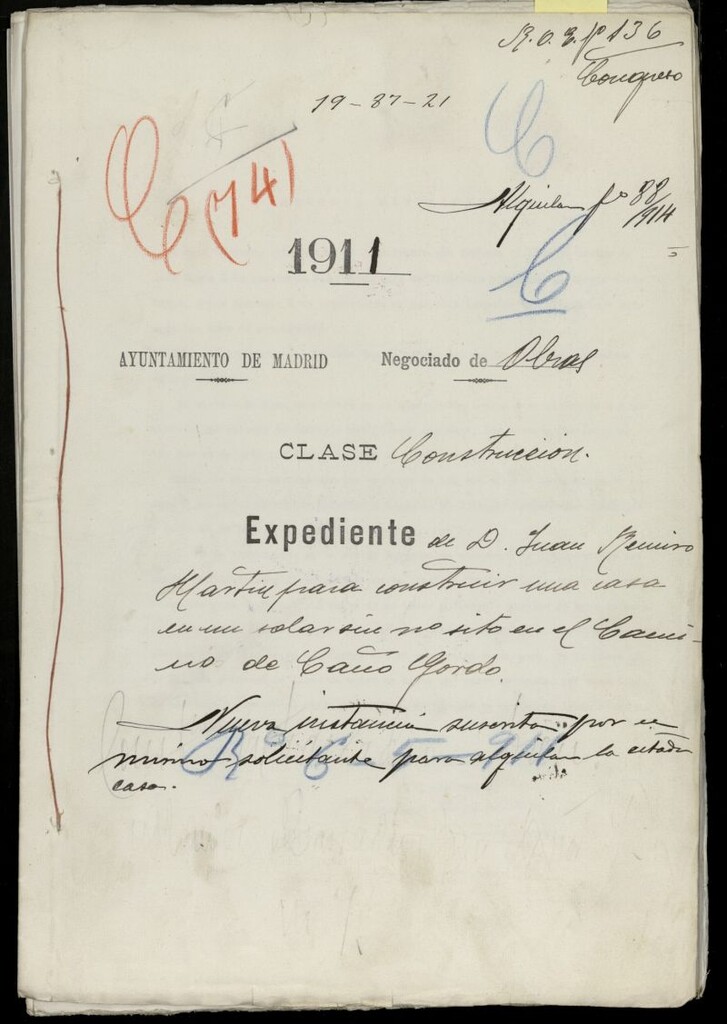 R.O.E. fº 136
Congreso
19-87-21
C
C (74)
Alquilar fº 88/914
1911
C
AYUNTAMIENTO DE MADRID Negociado de Obras
CLASE Construcción.
Expediente de D. Juan Remiro
Martin para construir una casa
en un solar sin nº sito en el Cami-
no de Caño Gordo.
Nueva instancia suscrita por el
mismo solicitante para alquilar la citada
casa.